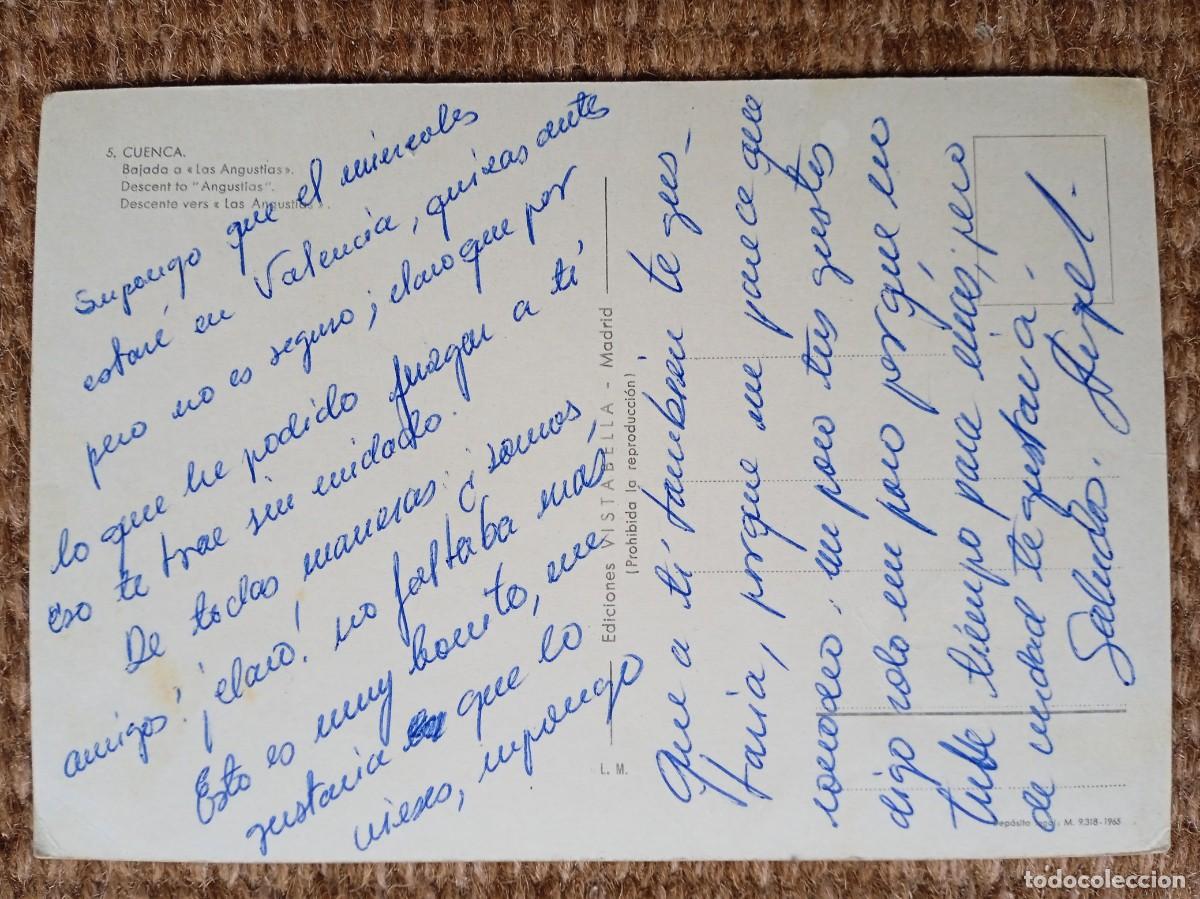 5. CUENCA.
Bajada a « Las Angustias ».
Descent to "Angustias".
Descente vers « Las Angustias ».
Supongo que el miercoles
estaré en Valencia, quizas antes
pero no es seguro; claro que por
lo que he podido juzgar a tí,
eso te trae sin cuidado.
De todas maneras ¡ somos
amigos! ¡claro! no faltaba más,
Esto es muy bonito, me
gustaria que lo
vieses, supongo
Que a tí tambien te gus-
taria, porque me parece que
conozco un poco tus gustos
digo solo un poco porqué no
tube tiempo para más, pero
de verdad te gustaria.
Saludos.
Ediciones VISTABELLA - Madrid
(Prohibida la reproducción)
L. M.
Depósito legal: M. 9.318-1965
todocoleccion